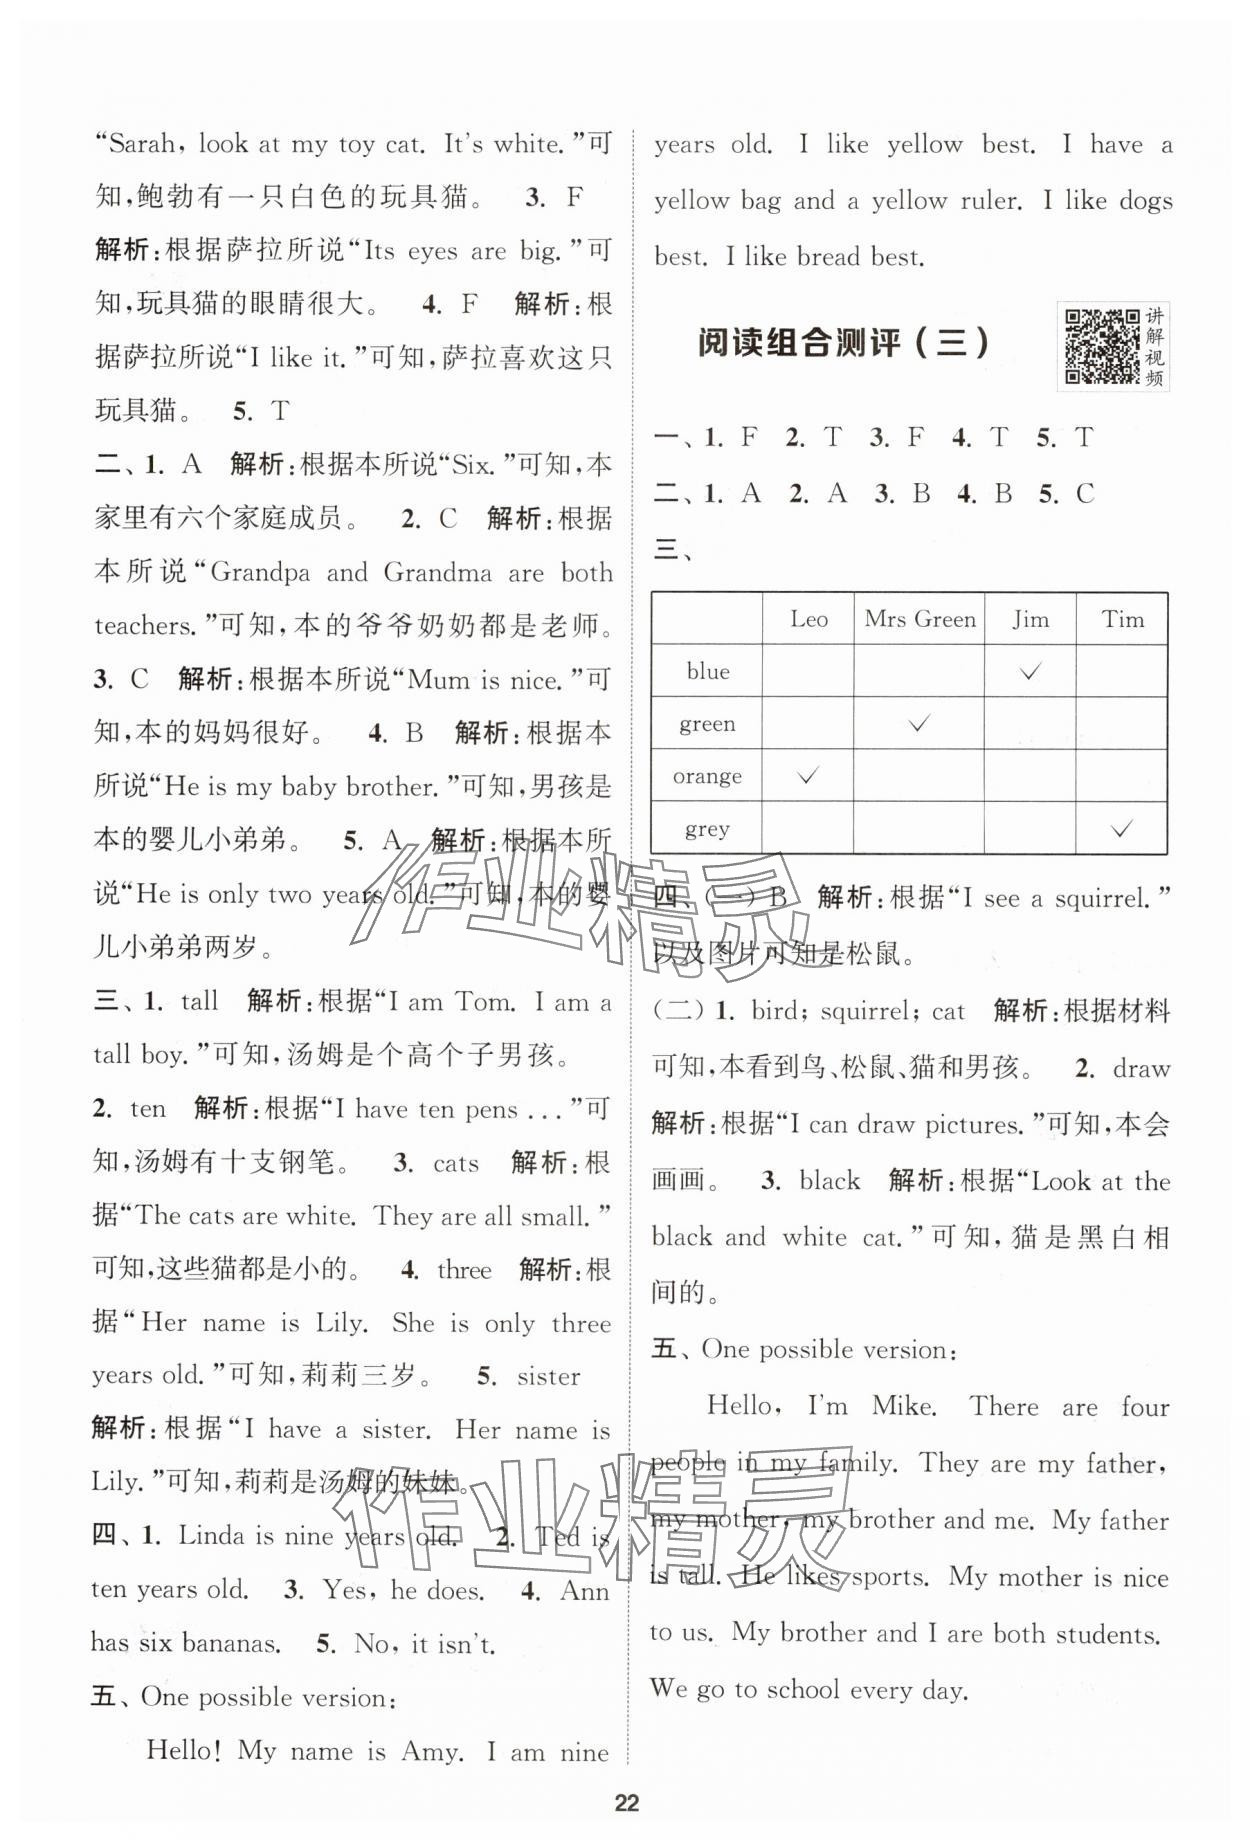 “Sarah, look at my toy cat. It's white. ”可
知,鲍勃有一只白色的玩具猫。 3. F
解析:根据萨拉所说“Its eyes are big. ”可
知,玩具猫的眼睛很大。 4. F 解析:根
据萨拉所说“I like it. ”可知,萨拉喜欢这只
玩具猫。 5. T
二、1. A 解析:根据本所说“Six. ”可知,本
家里有六个家庭成员。 2. C 解析:根据
本所说“Grandpa and Grandma are both
teachers. ”可知,本的爷爷奶奶都是老师。
3. C 解析:根据本所说“Mum is nice. ”可
知,本的妈妈很好。 4. B 解析:根据本
所说“He is my baby brother. ”可知,男孩是
本的婴儿小弟弟。 5. A 解析:根据本所
说“He is only two years old. ”可知,本的婴
儿小弟弟两岁。
三、1. tall 解析:根据“I am Tom. I am a
tall boy. ”可知,汤姆是个高个子男孩。
2. ten 解析:根据“I have ten pens ... ”可
知,汤姆有十支钢笔。 3. cats 解析:根
据“The cats are white. They are all small. ”
可知,这些猫都是小的。 4. three 解析:根
据“Her name is Lily. She is only three
years old. ”可知,莉莉三岁。 5. sister
解析:根据“I have a sister. Her name is
Lily. ”可知,莉莉是汤姆的妹妹。
四、1. Linda is nine years old. 2. Ted is
ten years old. 3. Yes, he does. 4. Ann
has six bananas. 5. No, it isn't.
五、One possible version:
Hello! My name is Amy. I am nine
years old. I like yellow best. I have a
yellow bag and a yellow ruler. I like dogs
best. I like bread best.
阅读组合测评(三)
讲解视频
一、1. F 2. T 3. F 4. T 5. T
二、1. A 2. A 3. B 4. B 5. C
三、
Leo Mrs Green Jim Tim
blue ✓
green ✓
orange ✓
grey ✓
四、(一) B 解析:根据“I see a squirrel. ”
以及图片可知是松鼠。
(二) 1. bird; squirrel; cat 解析:根据材料
可知,本看到鸟、松鼠、猫和男孩。 2. draw
解析:根据“I can draw pictures. ”可知,本会
画画。 3. black 解析:根据“Look at the
black and white cat. ”可知,猫是黑白相
间的。
五、One possible version:
Hello, I'm Mike. There are four
people in my family. They are my father,
my mother, my brother and me. My father
is tall. He likes sports. My mother is nice
to us. My brother and I are both students.
We go to school every day.
作业精灵
作业精灵
22